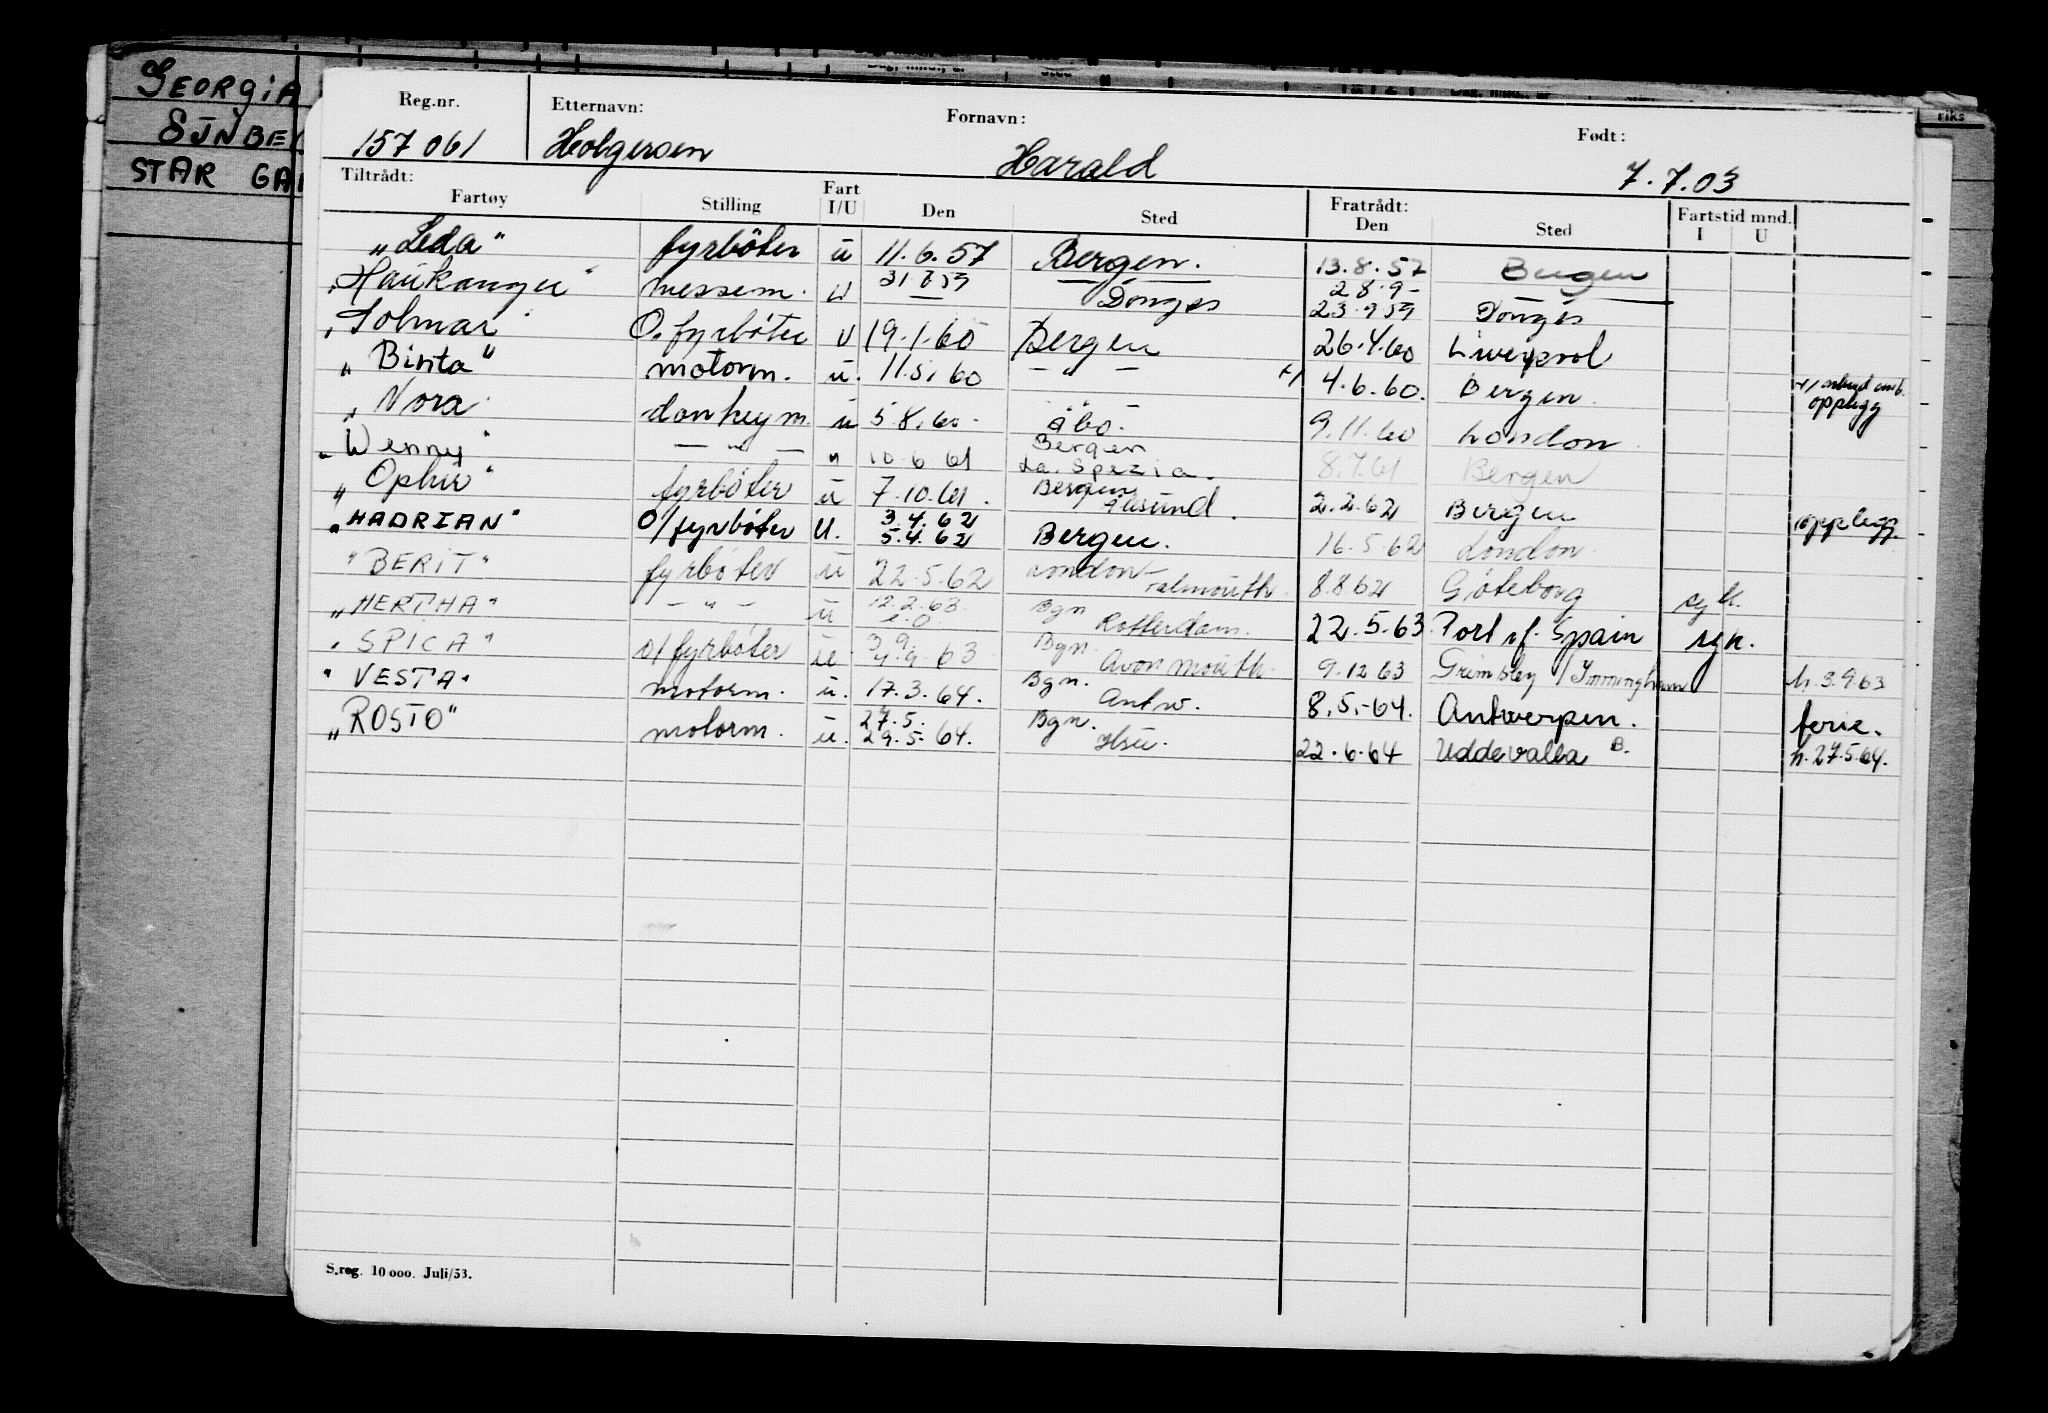 GEORGIA
STAR GA
Reg.nr. Etternavn: Fornavn: Født:
157061 Holgersen Harald 7.7.03
Tiltrådt: Fratrådt: Fartstid mnd.
Fartøy Stilling Fart I/U Den Sted Den Sted I U
"Leda" fyrbøter u 11.6.57 Bergen. 13.8.57 Bergen
"Haukanger" messem. u 31 8 59 Donges 28.9- 23.9.59 Donges
"Solmar" O. fyrbøter u 19.1.60 Bergen 26.4.60 Liverpool
"Binta" motorm. u. 11.5.60 — " — +/ 4.6.60. Bergen. +/ opplegg
"Nora" donkeym. u 5.8.60. Åbo. 9.11.60 London.
"Wenny" — " — " 10.6 61 Bergen La. Spezia. 8.7.61 Bergen
"Ophir" fyrbøter u 7.10.61. Bergen 2.2.62 Bergen
"HADRIAN" O/fyrbøter U. 3.4.62 5.4.62 Bergen. 16.5.62 London. opplegg.
"BERIT" fyrbøter u 22.5.62 London Falmouth. 8.8.62 Göteborg syk.
"HERTHA" — " — u 12.2.63 Bgn Rotterdam. 22.5.63. Port of Spain syk.
"SPICA" o/fyrbøter u 3 9. 4.9.63 Bgn. Avonmouth. 9.12 63 Grimsby/Immingham h. 3.9.63
"VESTA" motorm. u. 17.3.64. Bgn. Antw. 8.5.-64. Antwerpen. ferie.
"ROSTO" motorm. u. 27.5. 29.5.64. Bgn. Hsu. 22.6.64 Uddevalla B. h. 27.5.64.
S.reg. 10 000. Juli/53.